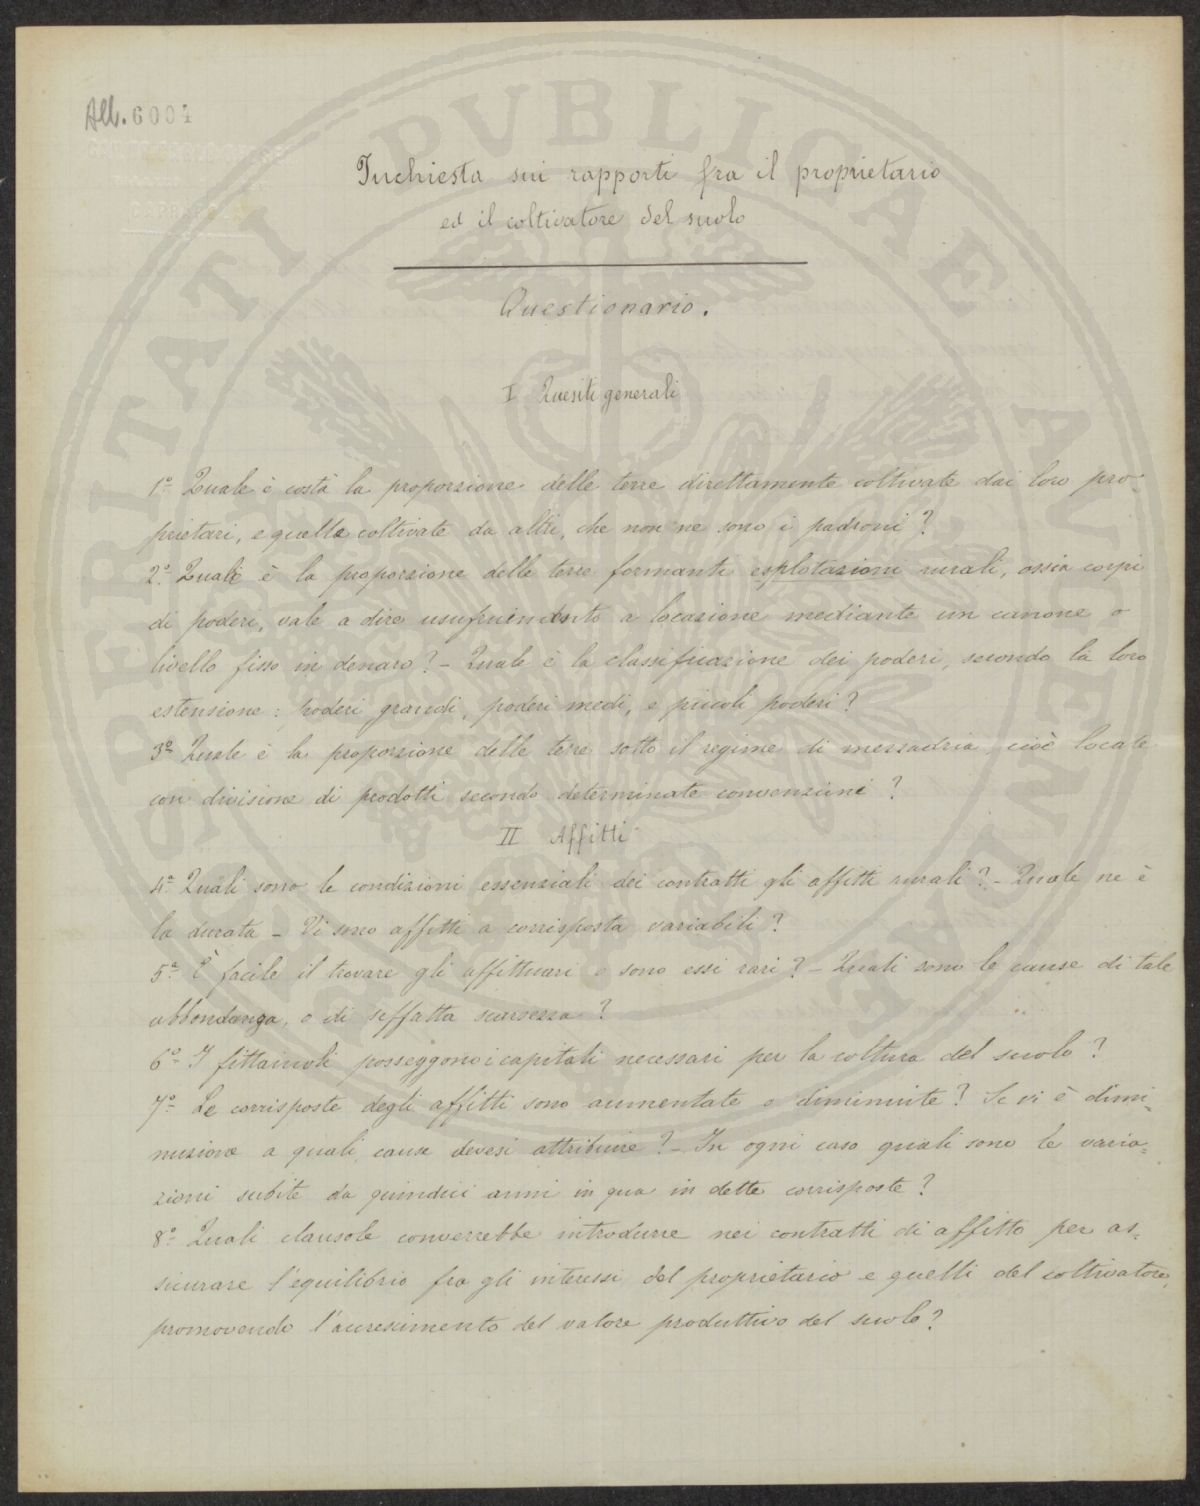 All. 6004
Inchiesta sui rapporti fra il proprietario
ed il coltivatore del suolo
Questionario.
I Quesiti generali
1º Quale è costà la proporzione delle terre direttamente coltivate dai loro pro-
prietari, e quelle coltivate da altri, che non ne sono i padroni?
2º Quale è la proporzione delle terre formanti esplotazioni rurali, ossia corpi
di poderi, vale a dire a locazione mediante un canone o
livello fisso in denaro? - Quale è la classificazione dei poderi, secondo la loro
estensione: poderi grandi, poderi medi, e piccoli poderi?
3º Quale è la proporzione delle terre sotto il regime di mezzadria, cioè locate
con divisione di prodotti secondo determinate convenzioni?
II Affitti
4º Quali sono le condizioni essenziali dei contratti gli affitti rurali? - Quale ne è
la durata - Vi sono affitti a corrisposta variabili?
5º È facile il trovare gli affittuari o sono essi rari? - Quali sono le cause di tale
abbondanza, o di siffatta scarsezza?
6º I fittaiuoli posseggono i capitali necessari per la coltura del suolo?
7º Le corrisposte degli affitti sono aumentate o diminuite? Se vi è dimi=
nuzione a quali cause devesi attribuire? - In ogni caso quali sono le varia=
zioni subite da quindici anni in qua in dette corrisposte?
8º Quali clausole converrebbe introdurre nei contratti di affitto per as=
sicurare l'equilibrio fra gli interessi del proprietario e quelli del coltivatore,
promovendo l'accrescimento del valore produttivo del suolo?
PROSPERITATI PVBLICAE AVGENDAE